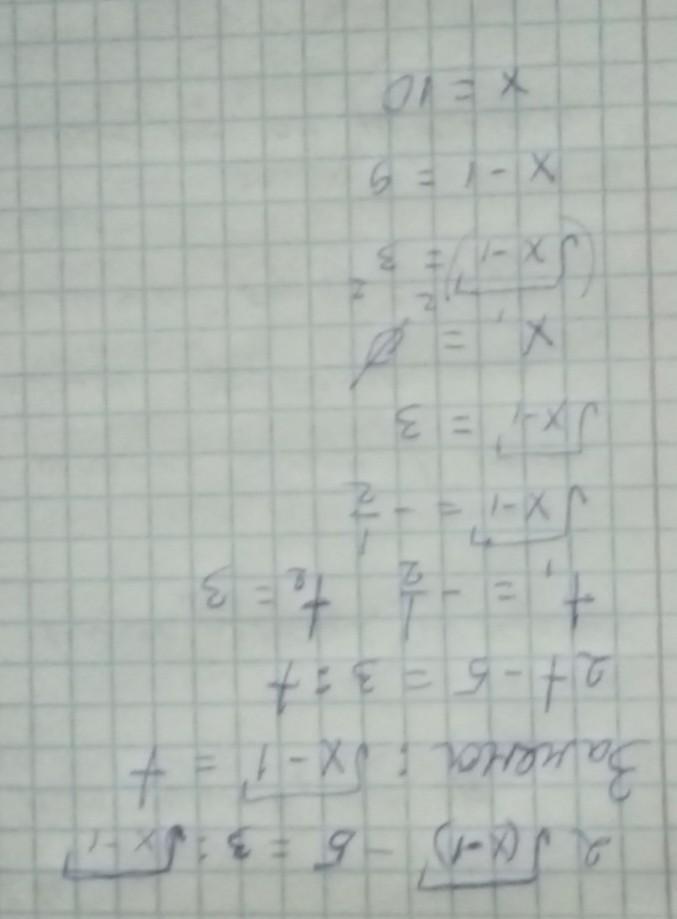 2√(x-1) - 5 = 3 : √x-1
Замена : √x-1 = t
2t - 5 = 3 : t
t₁ = - 1/2 t₂ = 3
√x-1 = - 1/2
√x-1 = 3
x₁ = ∅
(√x-1)² = 3²
x - 1 = 9
x = 10